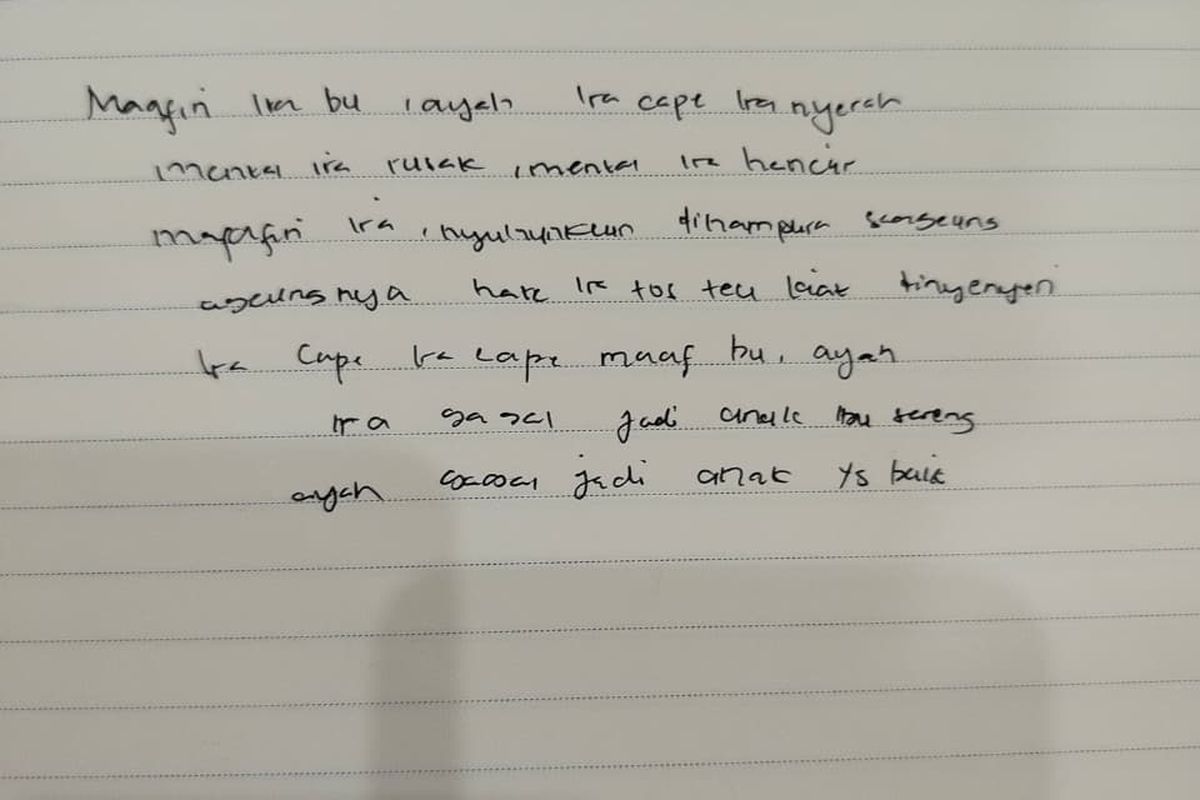 Maafin Ira bu , ayah Ira cape Ira nyerah
, mental ira rusak , mental Ira hancur
maafin Ira , dihampura
ageungnya hate Ira tos teu kiat
Ira Cape Ira cape maaf bu, ayah
Ira gagal jadi anak Ibu sareng
ayah gagal jadi anak yg baik